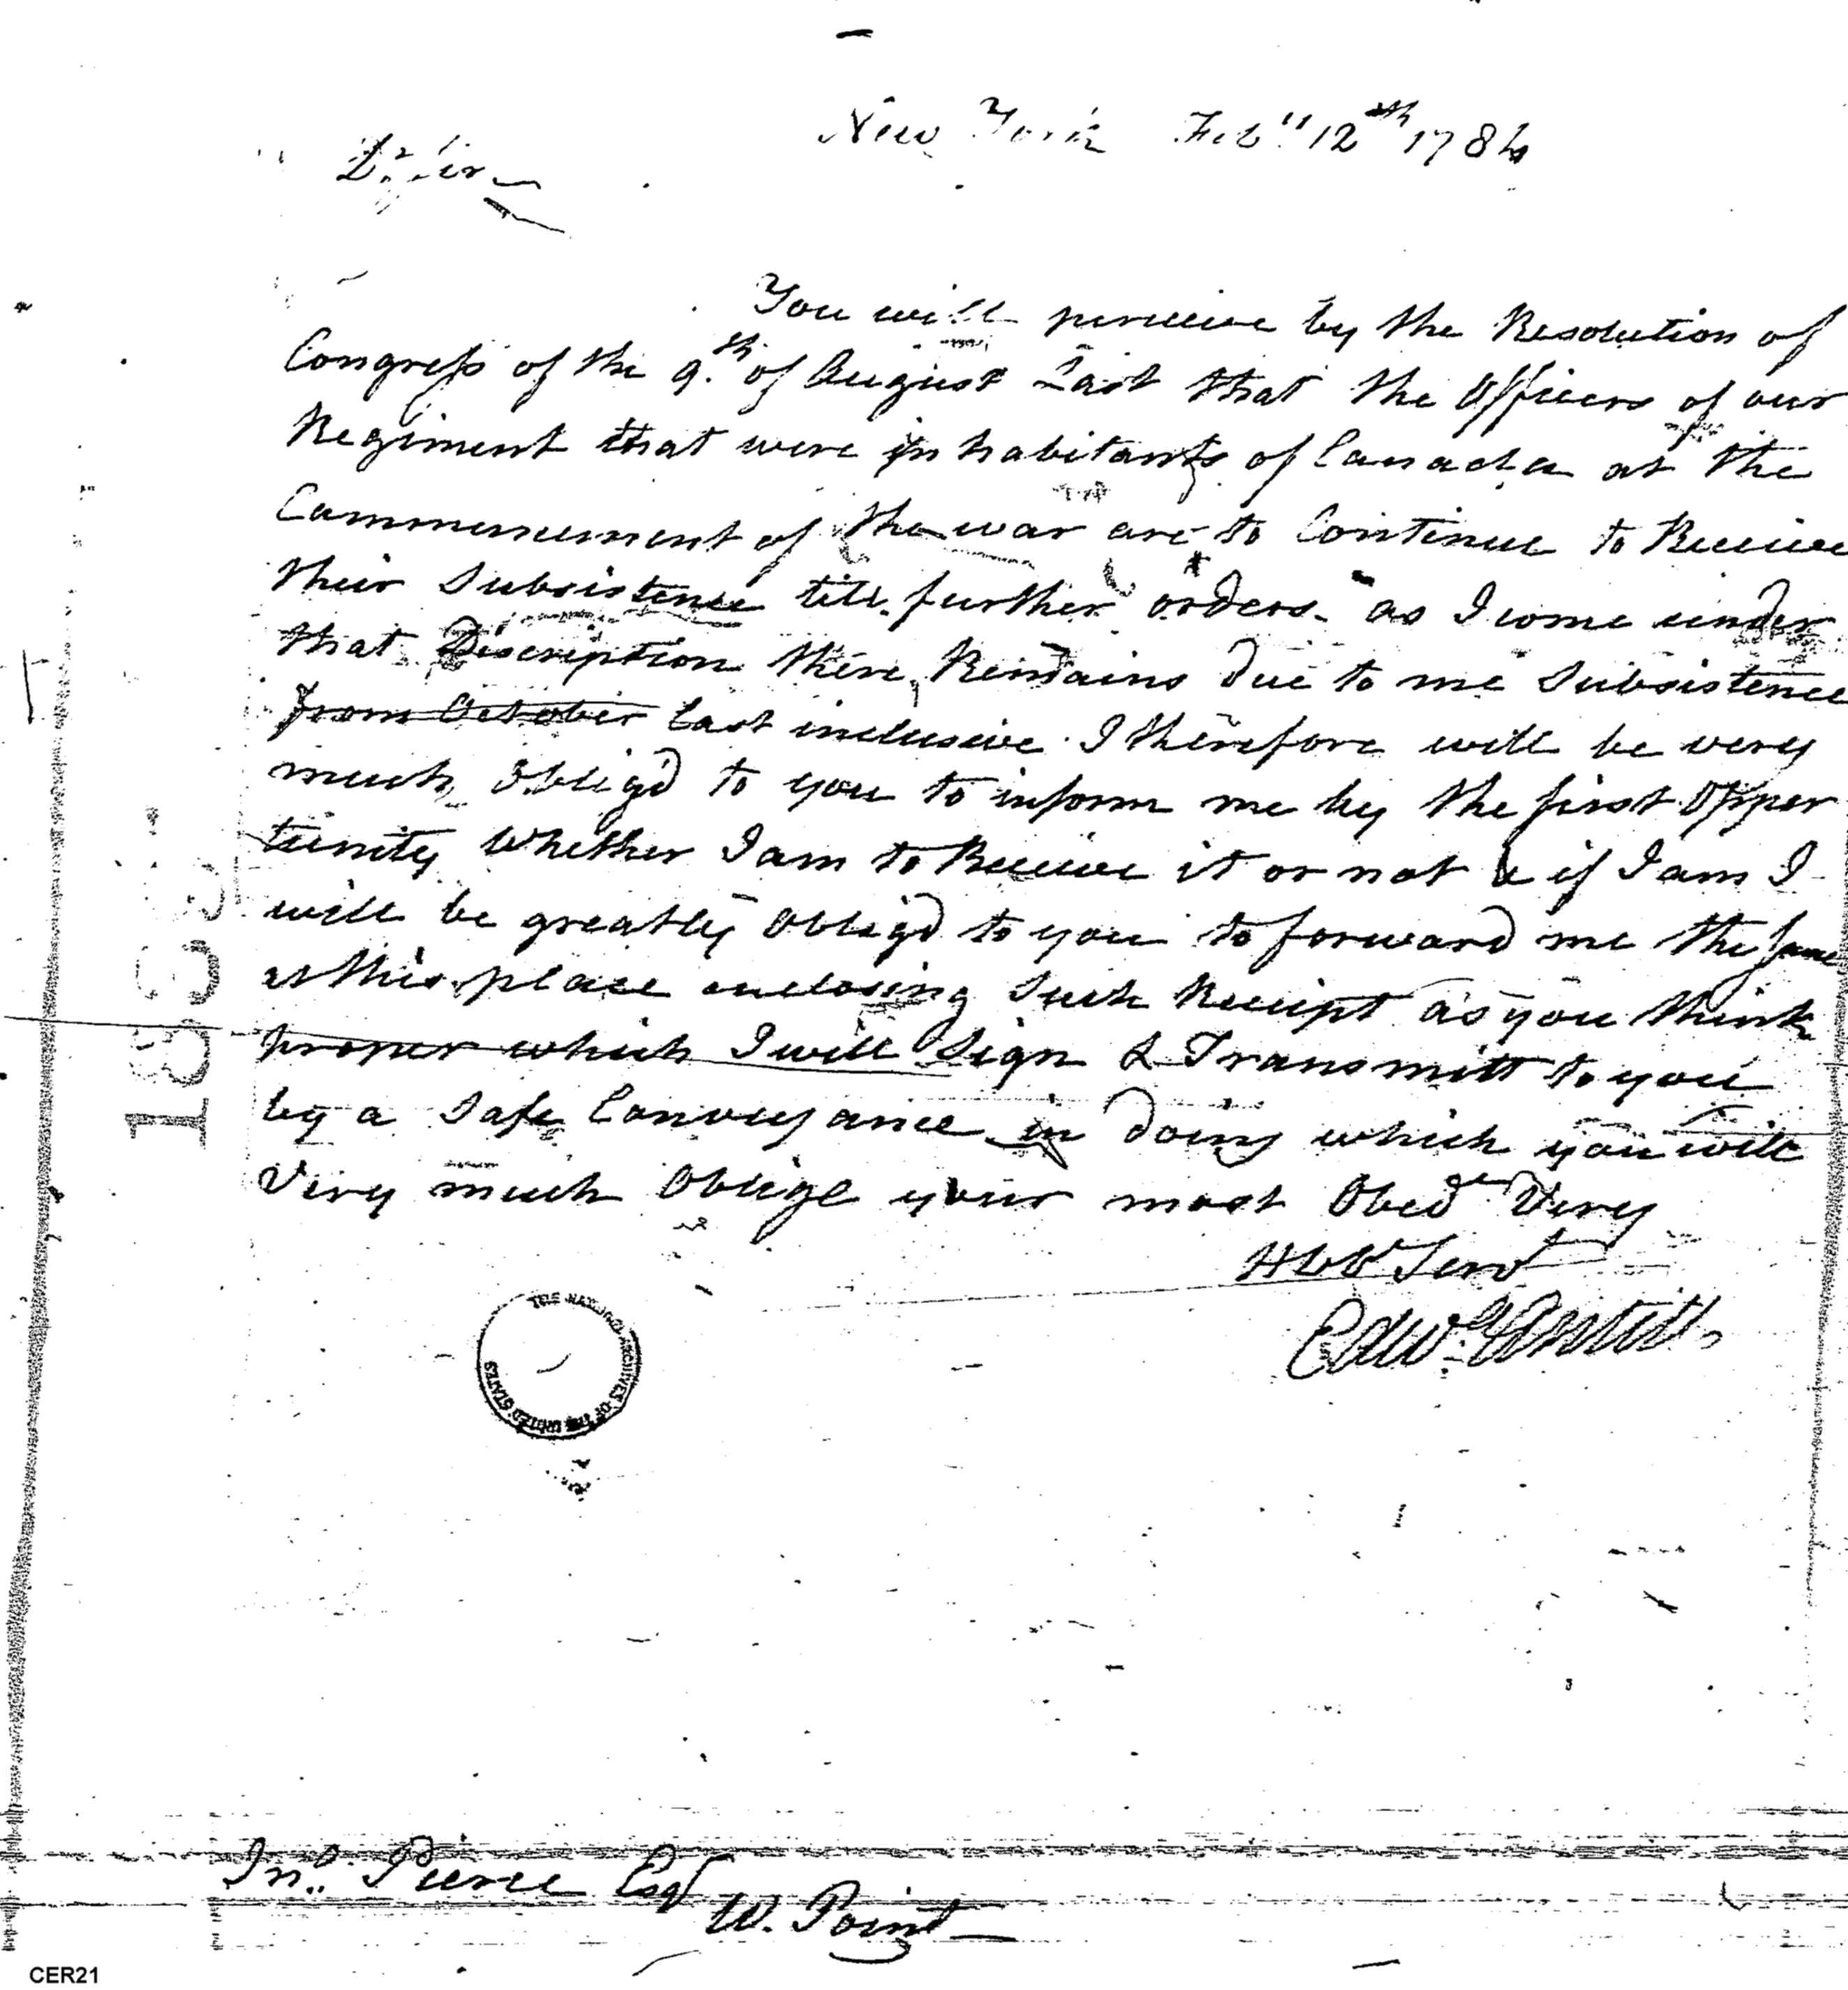 New York Feb.y 12th 1784
Dr Sir
You will perceive by the Resolution of
Congress of the 9.th of August Last that the Officers of our
Regiment that were inhabitants of Canada at the
Commencement of the war are to Continue to Receive
their Subsistence till further orders. as I come under
that Discription there Remains due to me Subsistence
from October last inclusive. I therefore will be very
much Obligd to you to inform me by the first Opper
tunity Whether I am to Receive it or not & if I am I
will be greatly Obligd to you to forward me the Same
at this place enclosing Such Receipt as you think
proper which I will Sign & Transmitt to you
by a Safe Conveyance in doing which you will
Very much Oblige your most Obedt Very
Hble Servt
Edwd Antill
THE NATIONAL ARCHIVES OF THE UNITED STATES
Jno. Pierce Esqr
W. Point
CER21